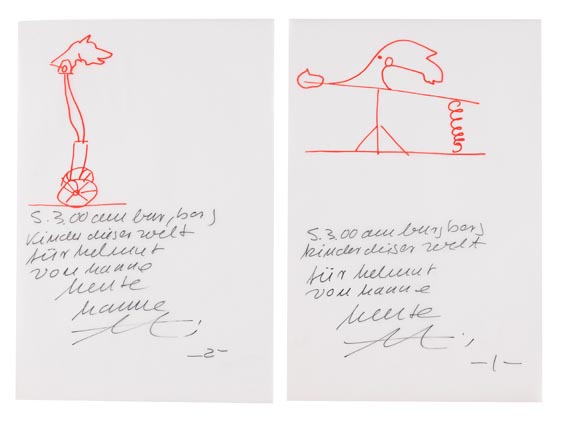 5.3.00 am burgberg
kinder dieser welt
für helmut
von hanne
heute
hanne
-2-
5.3.00 am burgberg
kinder dieser welt
für helmut
von hanne
heute
-1-